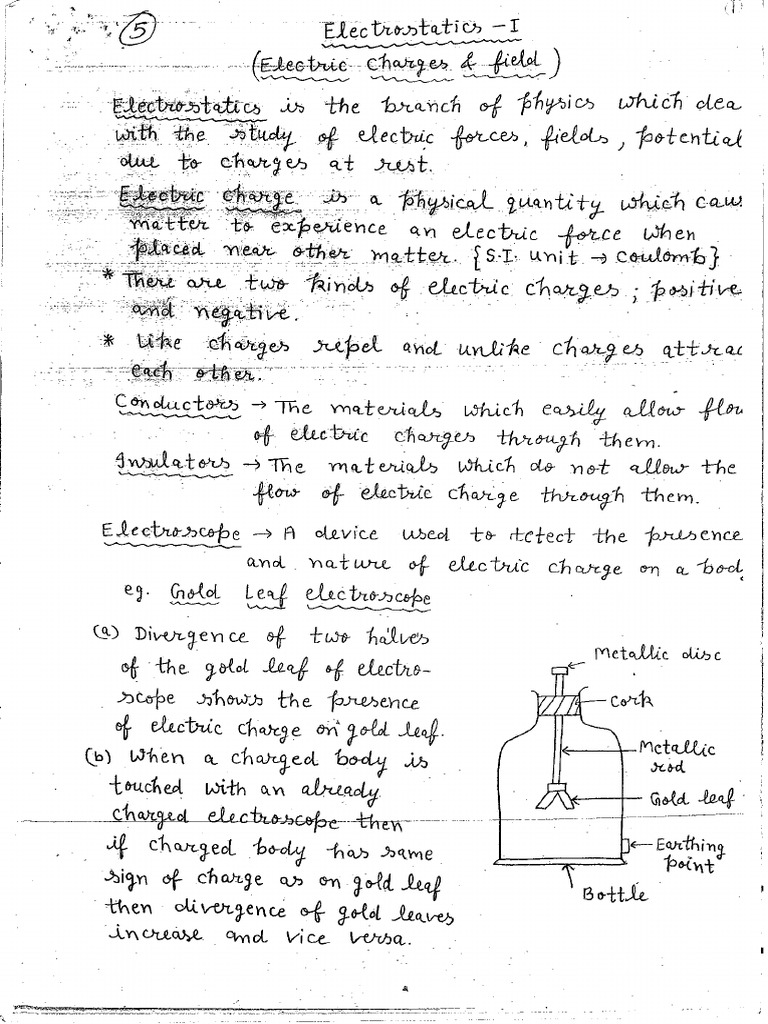 5
(1)
Electrostatics - I
(Electric Charges & field)
Electrostatics is the branch of physics which dea
with the study of electric forces, fields, potential
due to charges at rest.
Electric charge is a physical quantity which caus
matter to experience an electric force when
placed near other matter. {S.I. unit → coulomb}
* There are two kinds of electric charges; positive
and negative.
* Like charges repel and unlike charges attrac
each other.
Conductors → The materials which easily allow flow
of electric charges through them.
Insulators → The materials which do not allow the
flow of electric charge through them.
Electroscope → A device used to detect the presence
and nature of electric charge on a bod
eg. Gold Leaf electroscope
(a) Divergence of two halves
of the gold leaf of electro-
scope shows the presence
of electric charge on gold leaf.
(b) When a charged body is
touched with an already
charged electroscope then
if charged body has same
sign of charge as on gold leaf
then divergence of gold leaves
increase and vice versa.
Metallic disc
Cork
Metallic
rod
Gold leaf
Earthing
point
Bottle